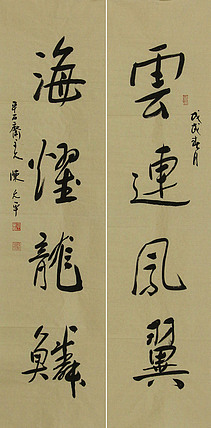 戊戌春月
雲連鳳翼
海燿龍鱗
齋主人陳